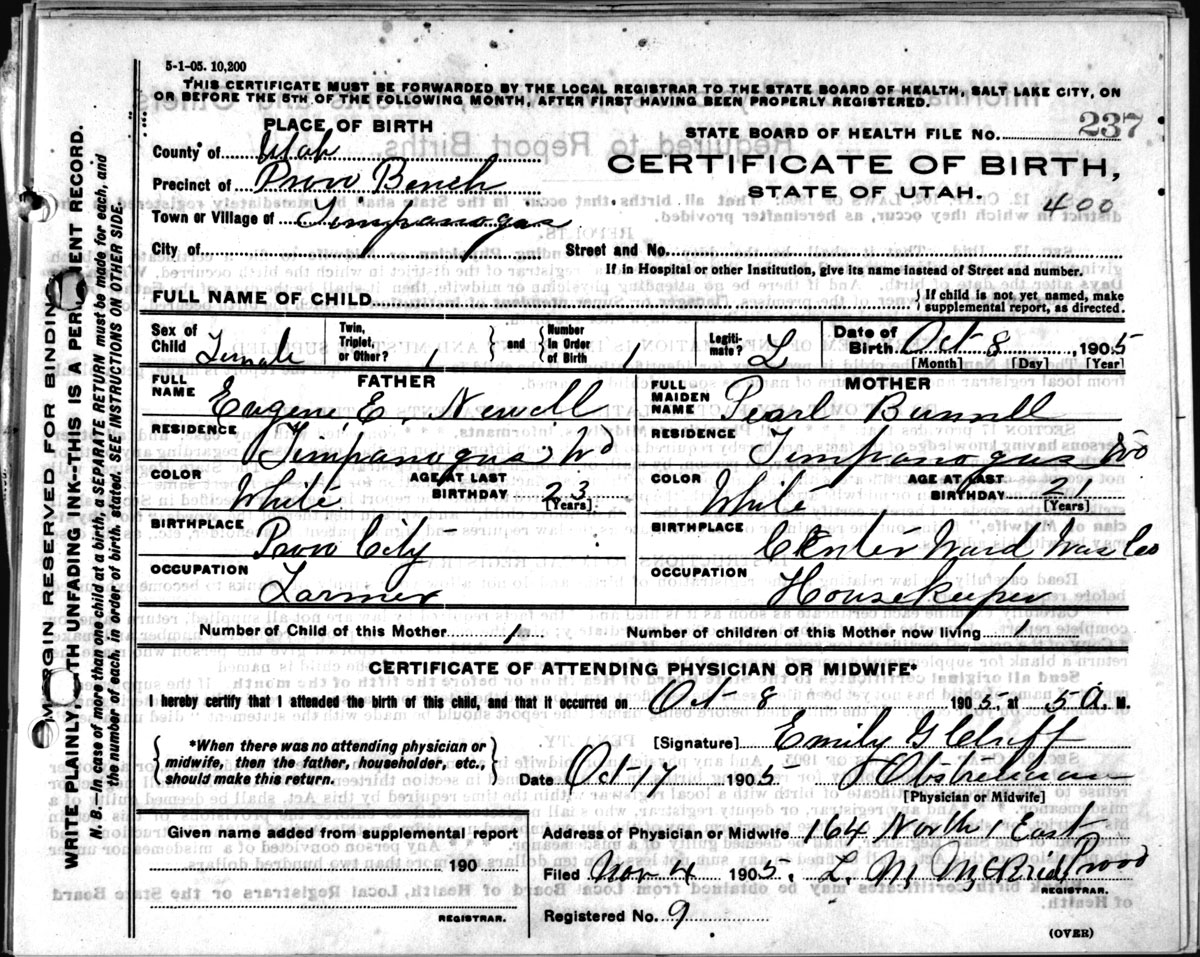 5-1-05. 10,200
THIS CERTIFICATE MUST BE FORWARDED BY THE LOCAL REGISTRAR TO THE STATE BOARD OF HEALTH, SALT LAKE CITY, ON
OR BEFORE THE 5TH OF THE FOLLOWING MONTH, AFTER FIRST HAVING BEEN PROPERLY REGISTERED.
PLACE OF BIRTH
STATE BOARD OF HEALTH FILE NO. 237
County of Utah
CERTIFICATE OF BIRTH,
Precinct of Provo Bench
STATE OF UTAH. 400
Town or Village of Timpanogas
City of Street and No.
If in Hospital or other Institution, give its name instead of Street and number.
FULL NAME OF CHILD { If child is not yet named, make
supplemental report, as directed.
Sex of Child Female Twin, Triplet, or Other? 1 } and { Number in Order of Birth 1 Legiti-mate? L Date of Birth Oct 8, 1905
[Month] [Day] [Year]
FATHER
FULL NAME Eugene E. Newell
RESIDENCE Timpanogus Wd
COLOR White AGE AT LAST BIRTHDAY 23 [Years]
BIRTHPLACE Provo City
OCCUPATION Farmer
MOTHER
FULL MAIDEN NAME Pearl Bunnell
RESIDENCE Timpanogus
COLOR White AGE AT LAST BIRTHDAY [Years]
BIRTHPLACE Center Ward Was Co
OCCUPATION Housekeeper
Number of Child of this Mother 1 Number of children of this Mother now living 1
CERTIFICATE OF ATTENDING PHYSICIAN OR MIDWIFE*
I hereby certify that I attended the birth of this child, and that it occurred on Oct-8 1905, at 5 A. M.
{ *When there was no attending physician or
midwife, then the father, householder, etc.,
should make this return. }
[Signature] Emily G Cliff
Date Oct-17 1905 Obstetrician
[Physician or Midwife]
Given name added from supplemental report
190
REGISTRAR.
Address of Physician or Midwife 164 North 1 East
Provo
Filed Nov 4 1905. L. M.
REGISTRAR.
Registered No. 9
(OVER)
MARGIN RESERVED FOR BINDING
WRITE PLAINLY, WITH UNFADING INK--THIS IS A PERMANENT RECORD.
N. B.—In case of more than one child at a birth, a SEPARATE RETURN must be made for each, and
the number of each, in order of birth, stated. SEE INSTRUCTIONS ON OTHER SIDE.